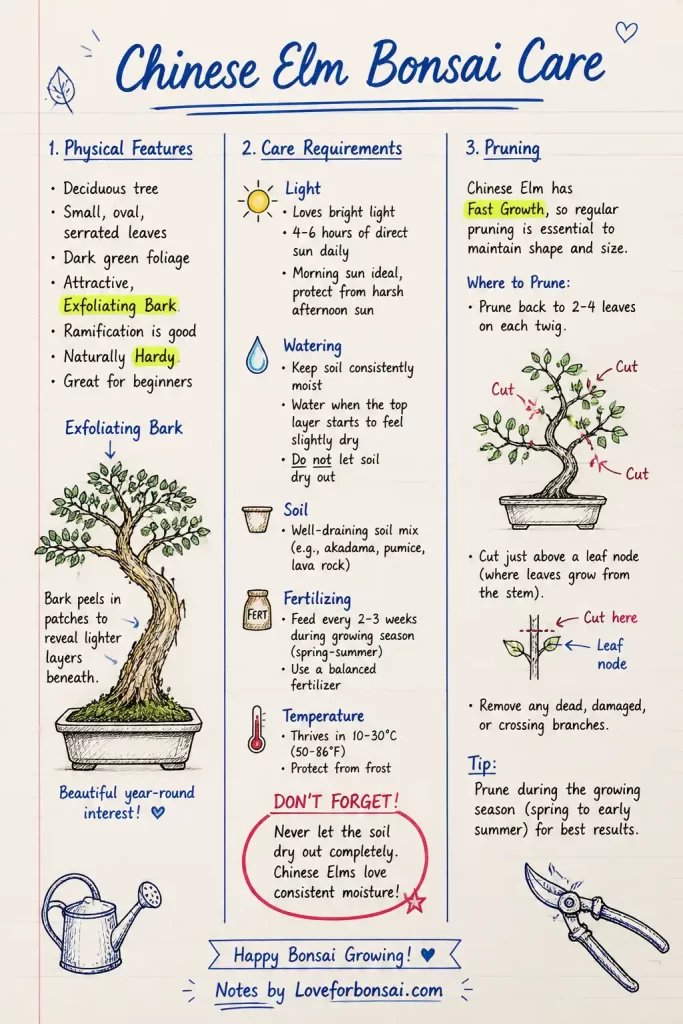 Chinese Elm Bonsai Care
1. Physical Features
• Deciduous tree
• Small, oval,
serrated leaves
• Dark green foliage
• Attractive,
Exfoliating Bark.
• Ramification is good
• Naturally Hardy.
• Great for beginners
Exfoliating Bark
Bark peels in
patches to
reveal lighter
layers
beneath.
Beautiful year-round
interest! ♥
2. Care Requirements
Light
• Loves bright light
• 4-6 hours of direct
sun daily
• Morning sun ideal,
protect from harsh
afternoon sun
Watering
• Keep soil consistently
moist
• Water when the top
layer starts to feel
slightly dry
• Do not let soil
dry out
Soil
• Well-draining soil mix
(e.g., akadama, pumice,
lava rock)
Fertilizing
FERT
• Feed every 2-3 weeks
during growing season
(spring-summer)
• Use a balanced
fertilizer
Temperature
• Thrives in 10-30°C
(50-86°F)
• Protect from frost
DON'T FORGET!
Never let the soil
dry out completely.
Chinese Elms love
consistent moisture!
3. Pruning
Chinese Elm has
Fast Growth, so regular
pruning is essential to
maintain shape and size.
Where to Prune:
• Prune back to 2-4 leaves
on each twig.
Cut
Cut
Cut
• Cut just above a leaf node
(where leaves grow from
the stem).
Cut here
Leaf
node
• Remove any dead, damaged,
or crossing branches.
Tip:
Prune during the growing
season (spring to early
summer) for best results.
Happy Bonsai Growing! ♥
Notes by Loveforbonsai.com